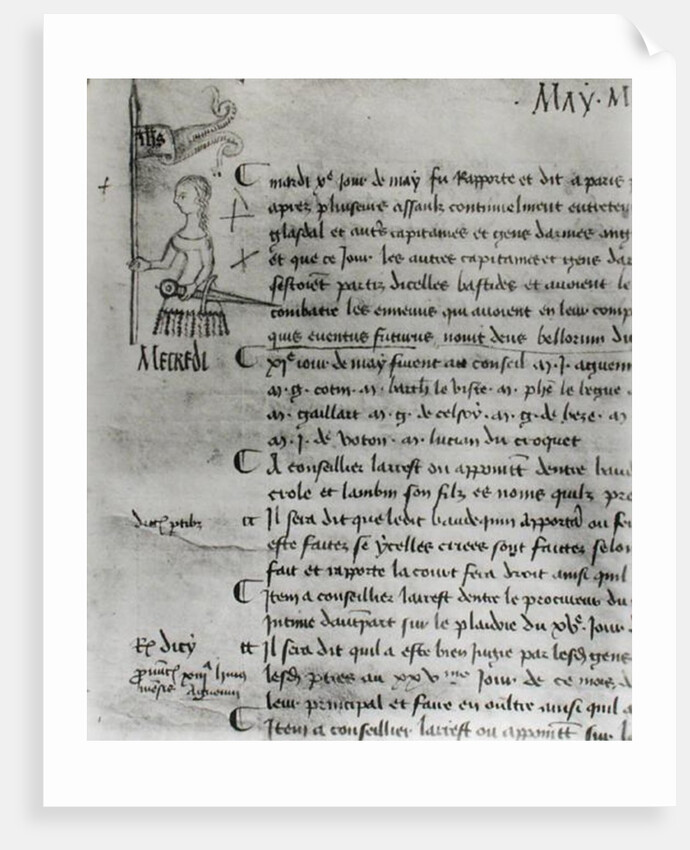 May. M
ihs
mardi xe jour de may fu Rapporte et dit a paris
apres plusieurs assaulz continuelment entretey
glasdal et autres capitaines et gens darmes ang
et que ce Jour les autres capitaines et gens dar
sestoient partiz dicelles bastides et avoient le
combatre les ennemis qui avoient en leur comp
quis eventus futurus novit deus bellorum du
MECREDI
xie jour de may furent au conseil m. J. aguenin
m. g. cotin. m. barth le viste. m. phe le begue
m. gaillart m. g. de celsoy. m. g. de beze. m
m. J. de voton. m. lucian du croquet
A conseillier larrest ou appointt dentre baud
et lambin son filz es noms quilz pre
Il sera dit que ledit baudequin apportera ou fe
este faites se ycelles criees sont faittes selon
fait et rapporte la court fera droit ainsi quil
Item a conseillier larrest dentre le procureur du
Intime dautrepart sur le plaidoie du xve. Jour
Ro dicy
Il sera dit quil a este bien Jugie par lesd gens
lesd parties au xxvme Jour de ce mois
leur principal et faire en oultre ainsi quil a
Item a conseillier larrest ou appointt sur l